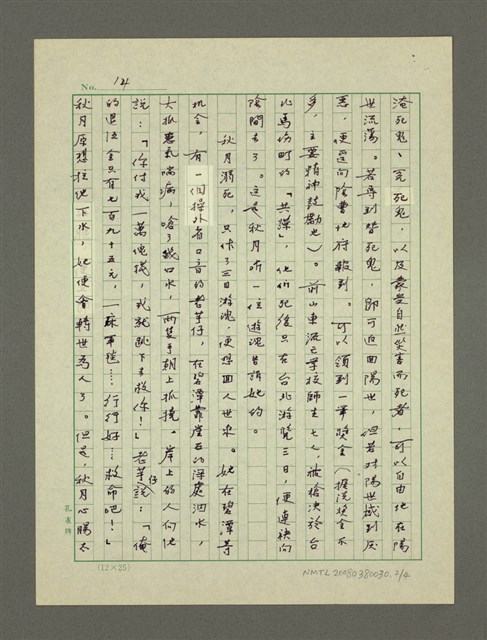 No. 14
淹死鬼、冤死鬼,以及蒙受自然災害而死者,可以自由地在陽
世流蕩。若尋到替死鬼,即可返回陽世,但若对陽世感到厌
惡,便逕向陰曹地府報到。可以領到一筆獎金(据說奖金不
多,主要精神鼓勵也)。前山東流亡学校師生七人,被槍決於台
北馬場町的「共諜」,他們死後只在台北游覽三日,便連袂向
陰間去了。这是秋月听一位遊魂告訴她的。
秋月溺死,只作了三日游魂,便想回人世來。她在碧潭等
机会,有一個操外省口音的老芋仔,在碧潭靠崖边的深处泅水,
大抵患気喘病,嗆了幾口水,两隻手朝上抓撓。岸上的人向他
說:「你付我一萬塊錢,我就跳下去救你!」老芋仔說:「俺
的退伍金只有七百九十五元,一床軍毯……行行好……救命吧!」
秋月原想拉他下水,她便會轉世為人了。但是,秋月心腸太
孔雀牌
(12×25)
NMTL20080380030.2/4